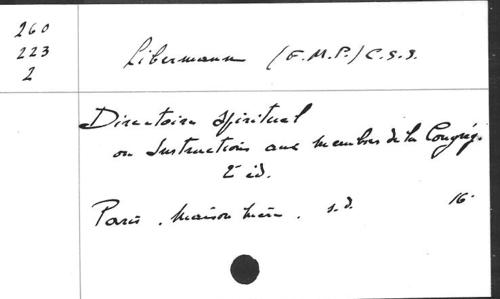 260
223
2
Libermann (F.M.P.) C.S.S.
Directoire Spirituel
ou Instructions aux membres de la Congrég.
2e éd.
Paris, Maison Mère, s.d. 16°